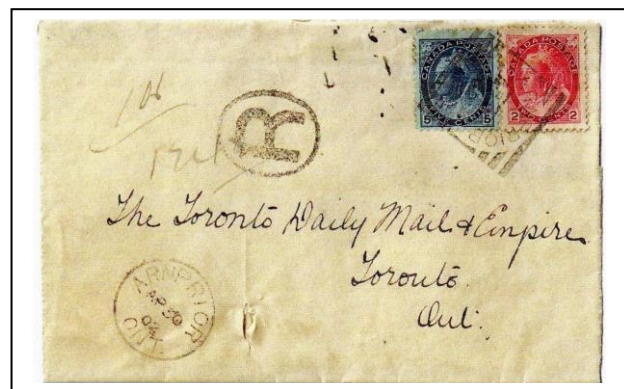 CANADA POSTAGE
5 5
CANADA POSTAGE
2 CENTS 2
R
The Toronto Daily Mail & Empire
Toronto.
Ont.
ARNPRIOR
AP 30
ONT